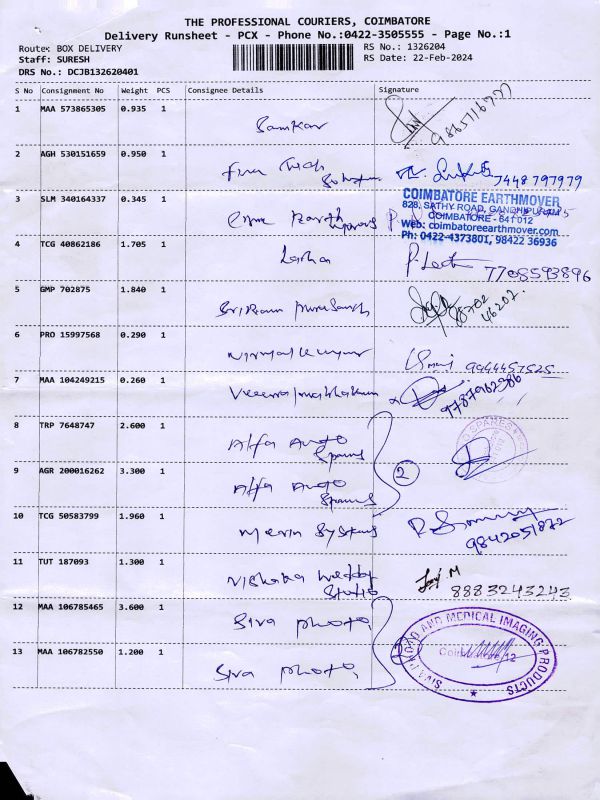 THE PROFESSIONAL COURIERS, COIMBATORE
Delivery Runsheet - PCX - Phone No.:0422-3505555 - Page No.:1
Route: BOX DELIVERY
RS No.: 1326204
Staff: SURESH
RS Date: 22-Feb-2024
DRS No.: DCJB132620401
S No Consignment No Weight PCS Consignee Details Signature
1 MAA 573865305 0.935 1 Sankar
2 AGH 530151659 0.950 1 7448797979
3 SLM 340164337 0.345 1
COIMBATORE EARTHMOVER
828, SATHY ROAD, GANDHIPURAM
COIMBATORE - 641 012
Web: coimbatoreearthmover.com
Ph: 0422-4373801, 98422 36936
4 TCG 40862186 1.705 1 7708593896
5 GMP 702875 1.840 1
6 PRO 15997568 0.290 1 Nirmal Kumar
7 MAA 104249215 0.260 1 Veeraprabhakaran
8 TRP 7648747 2.600 1 Alfa Auto
Spares
9 AGR 200016262 3.300 1 Alfa Auto
Spares
2
10 TCG 50583799 1.960 1 9842051872
11 TUT 187093 1.300 1 8883243243
12 MAA 106785465 3.600 1 Siva Photo,
13 MAA 106782550 1.200 1 Siva Photo,
2
AND MEDICAL IMAGING PRODUCTS